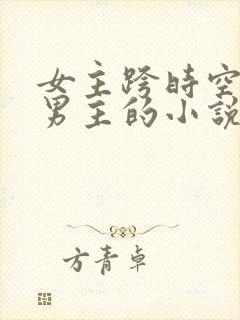 女主跨時空
男主的小說
方青卓